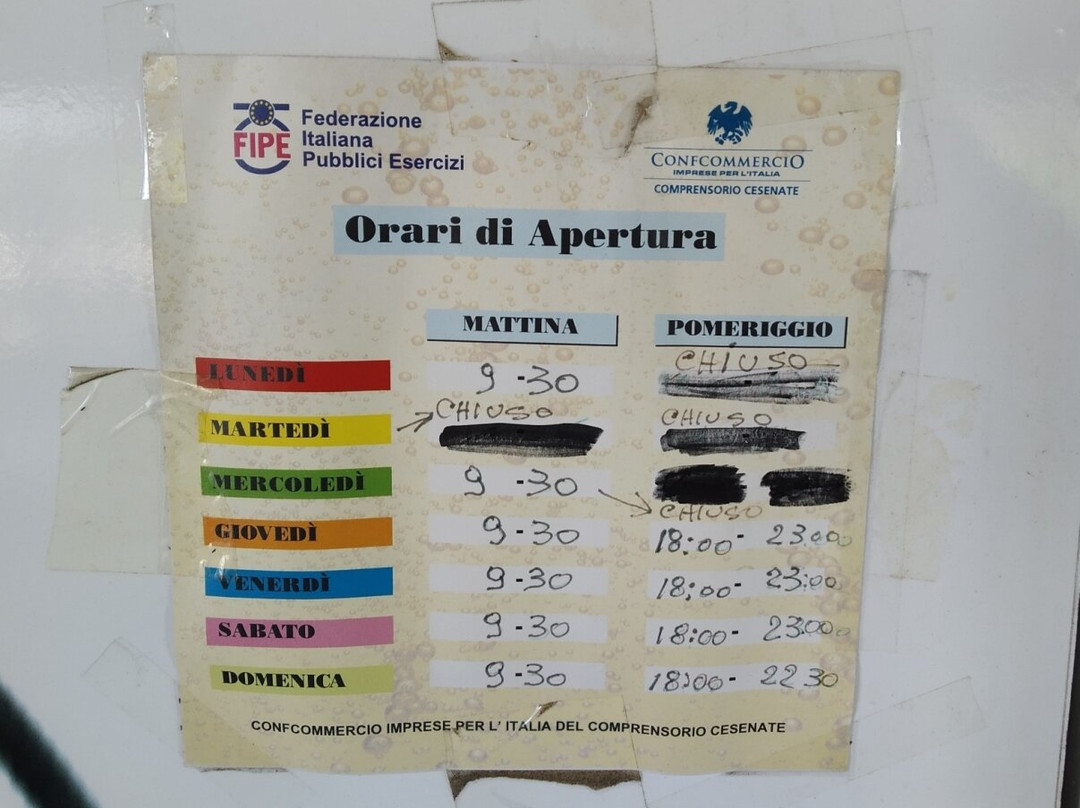 FIPE
Federazione
Italiana
Pubblici Esercizi
CONFCOMMERCIO
IMPRESE PER L'ITALIA
COMPRENSORIO CESENATE
Orari di Apertura
MATTINA POMERIGGIO
CHIUSO
LUNEDÌ 9-30
CHIUSO CHIUSO
MARTEDÌ
MERCOLEDÌ 9-30
CHIUSO
GIOVEDÌ 9-30 18:00- 23:00
VENERDÌ 9-30 18:00- 23:00
SABATO 9-30 18:00- 23:00
DOMENICA 9-30 18:00- 22 30
CONFCOMMERCIO IMPRESE PER L' ITALIA DEL COMPRENSORIO CESENATE